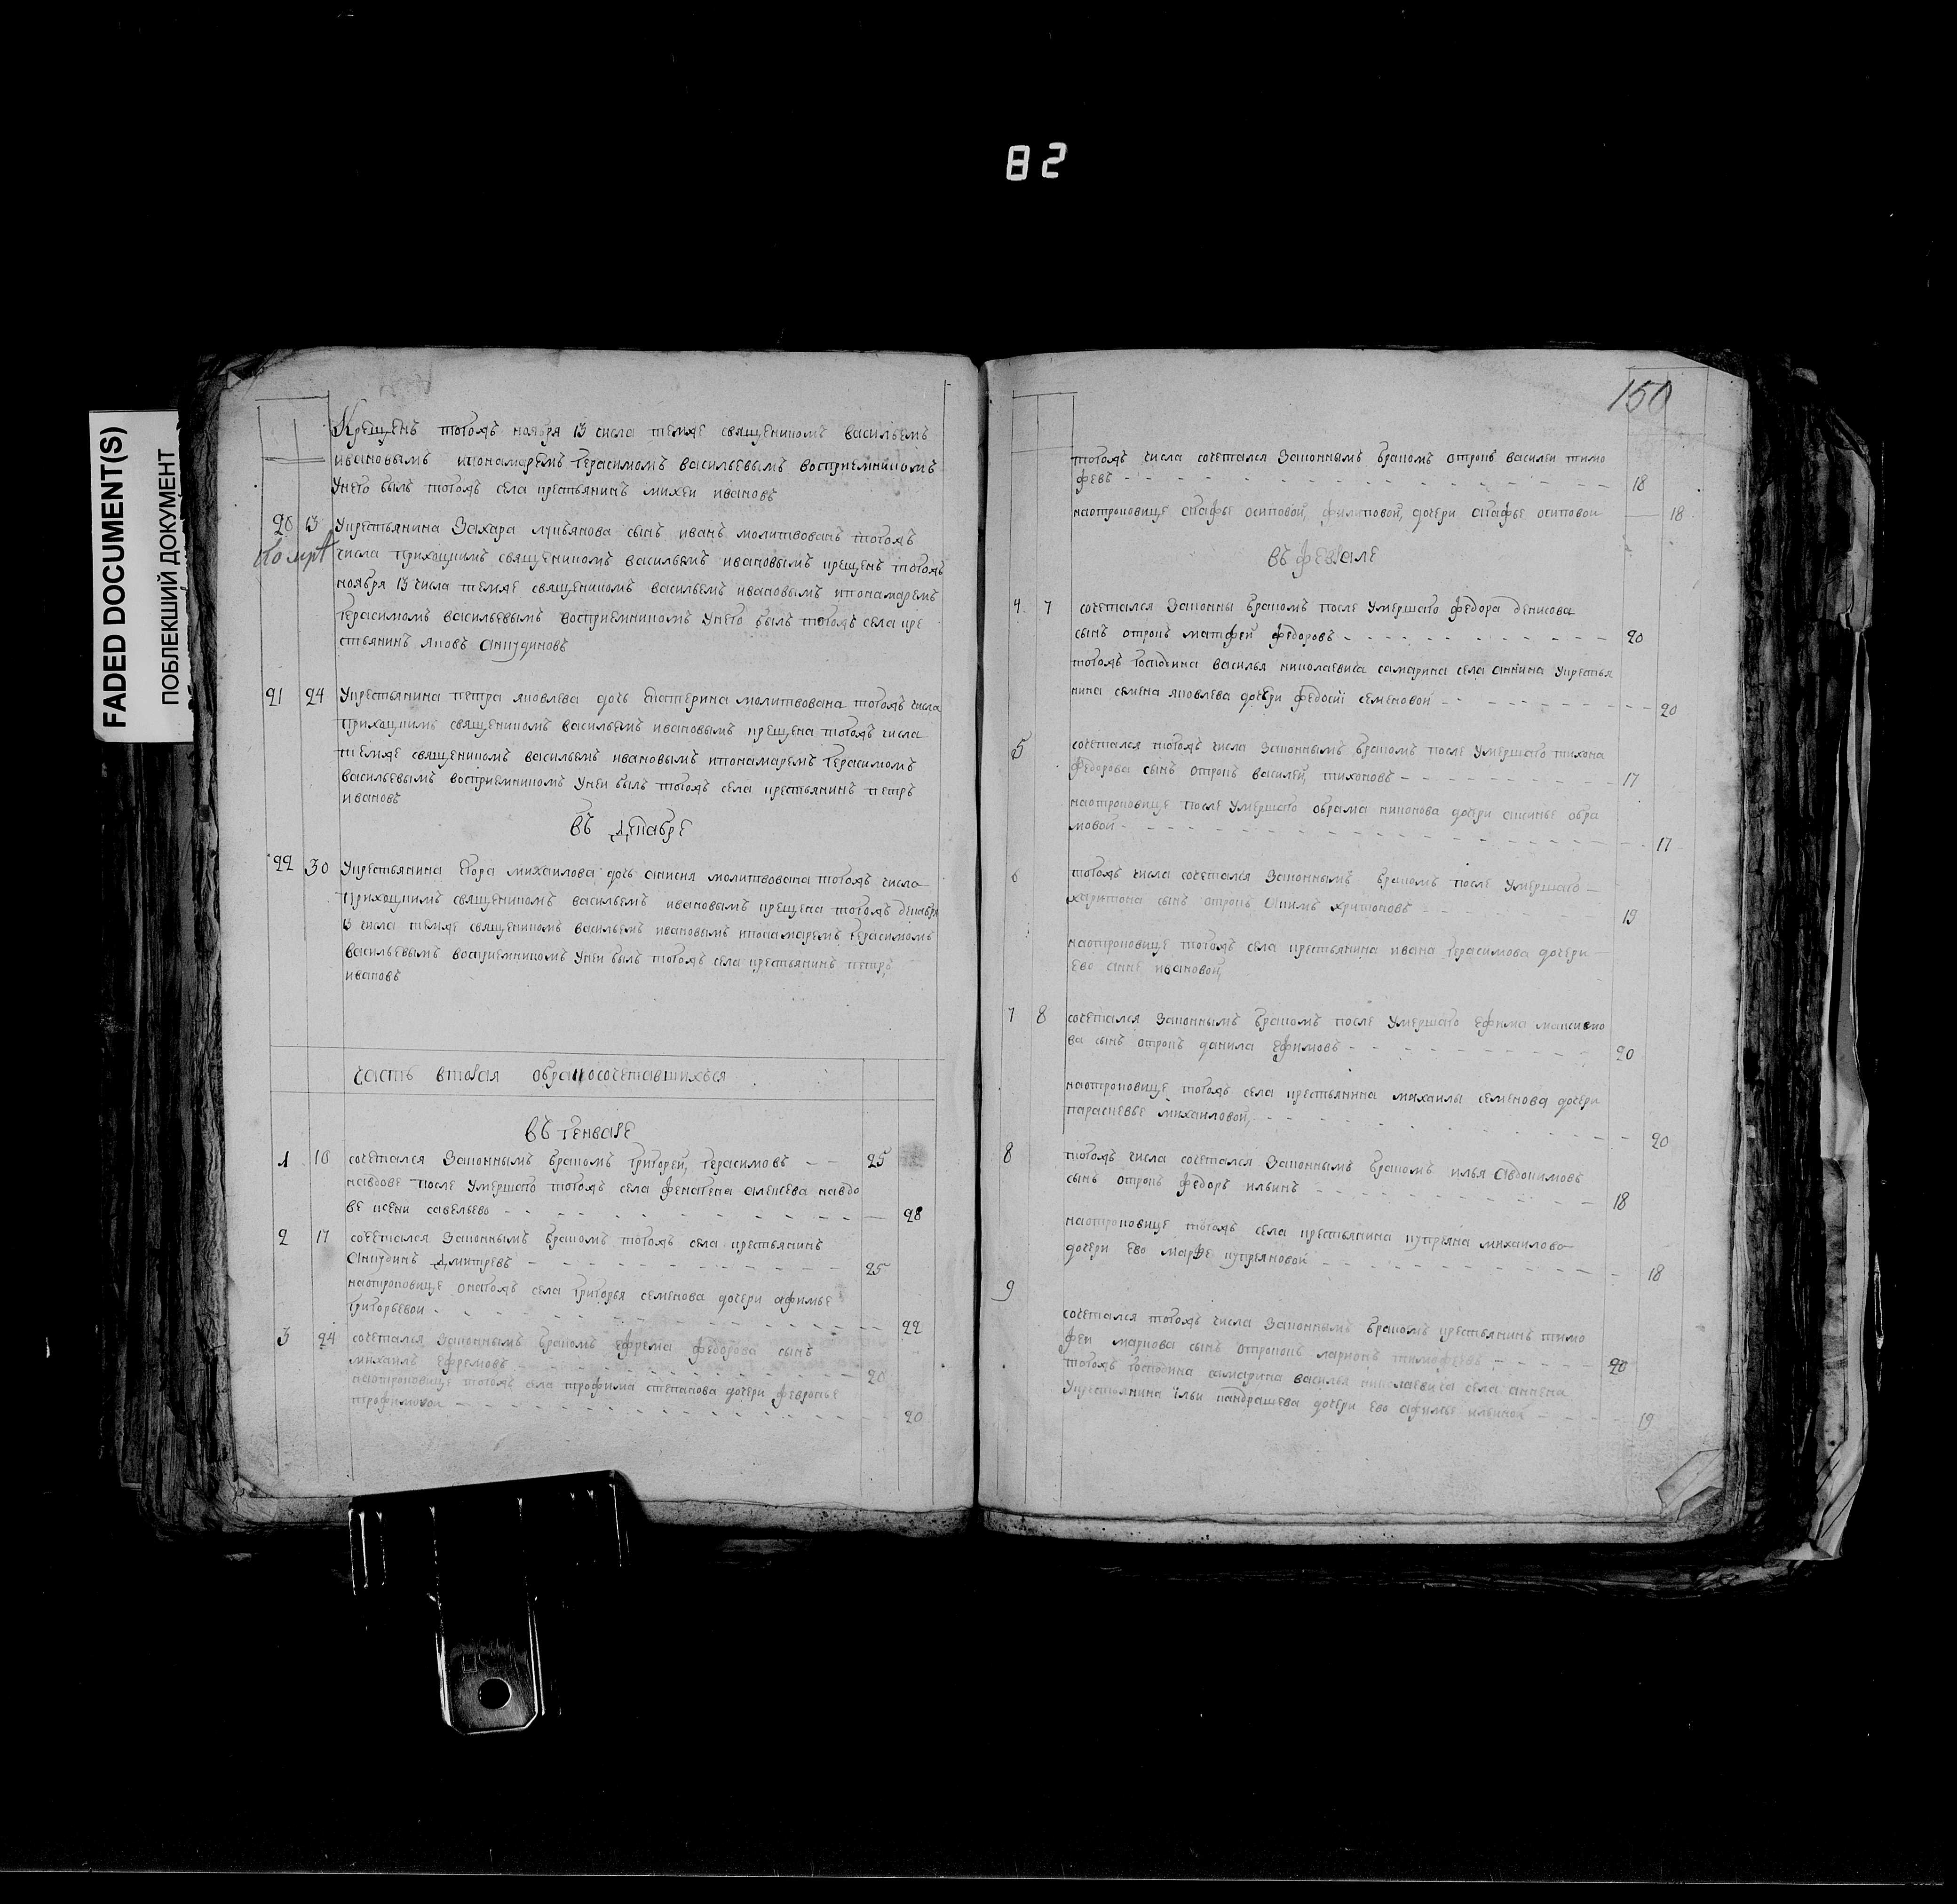 82
FADED DOCUMENT(S)
ПОБЛЕКШИЙ ДОКУМЕНТ
Крещенъ тогожъ ноября 13 числа темже священикомъ васильемъ
ивановымъ ипонамаремъ герасимомъ васильевымъ восприемникомъ
Унего былъ тогожъ села крестьянинъ михеи ивановъ
20 13 Укрестьянина Захара лукьянова сынъ иванъ молитвованъ тогожъ
числа приходцкимъ священикомъ васильемъ ивановымъ крещенъ тогожъ
ноября 13 числа темже священикомъ васильемъ ивановымъ ипонамаремъ
герасимомъ васильевымъ восприемникомъ Унего былъ тогожъ села кре
стьянинъ яковъ анкудиновъ
21 24 Укрестьянина петра яковлева дочь екатерина молитвована тогожъ числа
приходцкимъ священикомъ васильемъ ивановымъ крещена тогожъ числа
темже священикомъ васильемъ ивановымъ ипонамаремъ герасимомъ
васильевымъ восприемникомъ Унеи былъ тогожъ села крестьянинъ петръ
ивановъ
въ декабре
22 30 Укрестьянина егора михаилова дочь анисия молитвована тогожъ числа
приходцкимъ священикомъ васильемъ ивановымъ крещена тогожъ декабря
3 числа темже священикомъ васильемъ ивановымъ ипонамаремъ герасимомъ
васильевымъ восприемникомъ Унеи былъ тогожъ села крестьянинъ петръ
ивановъ
часть вторая обракосочетавшихъся
въ генваре
1 10 сочетался Законнымъ бракомъ григореи герасимовъ 25
навдове после умершаго тогожъ села алексева навдо
ве ксени савельево 28
2 17 сочетался Законнымъ бракомъ тогожъ села крестьянинъ
Анкудинъ дмитревъ 25
наотроковице онагожъ села григорья семенова дочери афимье
григорьевои 22
3 24 сочетался Законнымъ бракомъ ефрема федорова сынъ
михаилъ ефремовъ 20
наотроковице тогожъ села трофима степанова дочери февронье
трофимовои 20
150
тогожъ числа сочетался Законнымъ бракомъ отрокъ василеи тимо
февъ 18
наотроковице агафье осиповой, филиповой, дочери агафье осиповои 18
въ феврале
4 7 сочетался Законны бракомъ после Умершаго федора денисова
сынъ отрокъ матфей федоровъ 20
тогожъ господина василья николаевича самарина села аннина Укрестья
нина семена яковлева дочери федосьи семеновой 20
5 сочетался тогожъ числа Законнымъ бракомъ после Умершаго тихона
федорова сынъ отрокъ василеи тихоновъ 17
наотроковице после Умершаго обрама никонова дочери аксинье обра
мовои 17
6 тогожъ числа сочетался Законнымъ бракомъ после Умершаго
харитона сынъ отрокъ Акимъ хритоновъ 19
наотроковице тогожъ села крестьянина ивана герасимова дочери
ево анне ивановой
7 8 сочетался Законнымъ бракомъ после Умершаго ефима максимо
ва сынъ отрокъ данила ефимовъ 20
наотроковице тогожъ села крестьянина михаилы семенова дочери
парасковье михаиловой 20
8 тогожъ числа сочетался Законнымъ бракомъ илья Авдокимовъ
сынъ отрокъ федоръ ильинъ 18
наотроковице тогожъ села крестьянина купрьяна михаилова
дочери ево марфе купреяновой 18
9 сочетался тогожъ числа Законнымъ бракомъ крестьянинъ тимо
феи маркова сынъ отрокомъ ларионъ тимофеевъ 20
тогожъ господина самарина василья николаевича села аннена
Укрестьянина ильи кандрашева дочери ево афимье ильиной 19